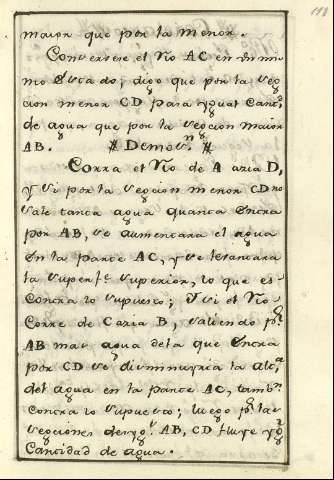 maior que por la menor.
Conservese el Rio AC en un mis
mo estado; digo que por la seg
cion menor CD passa ygual Cantd.
de agua que por la segcion maior
AB. # Demon. #
Corra el Rio de A azia D,
y si por la segcion menor CD no
sale tanta agua quanta entra
por AB, se aumentara el agua
en la parte AC, y se levantara
la superfe. superior, lo que es
contra lo supuesto; y si el Rio
Corre de C azia B, saliendo pr.
AB mas agua de la que entra
por CD se disminuyria la alta.
del agua en la parte AC, tambn.
contra lo supuesto; luego pr. las
segciones desygs. AB, CD fluye ygl.
Cantidad de agua.